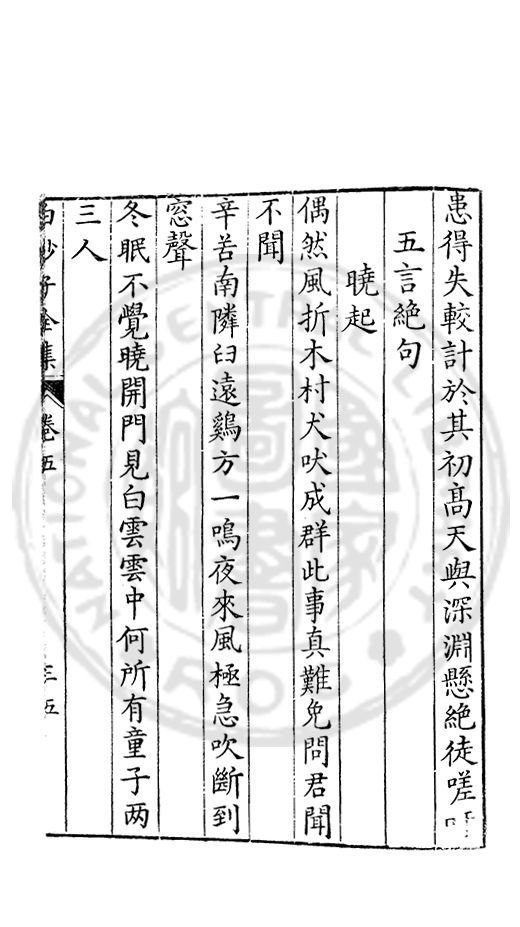 患得失較計於其初高天與深淵懸絶徒嗟
五言絶句
曉起
偶然風折木村犬吠成群此事真難免問君聞
不聞
辛苦南隣臼遠鷄方一鳴夜來風極急吹斷到
窓聲
冬眠不覺曉開門見白雲雲中何所有童子两
三人
白沙子全集 卷五 三五